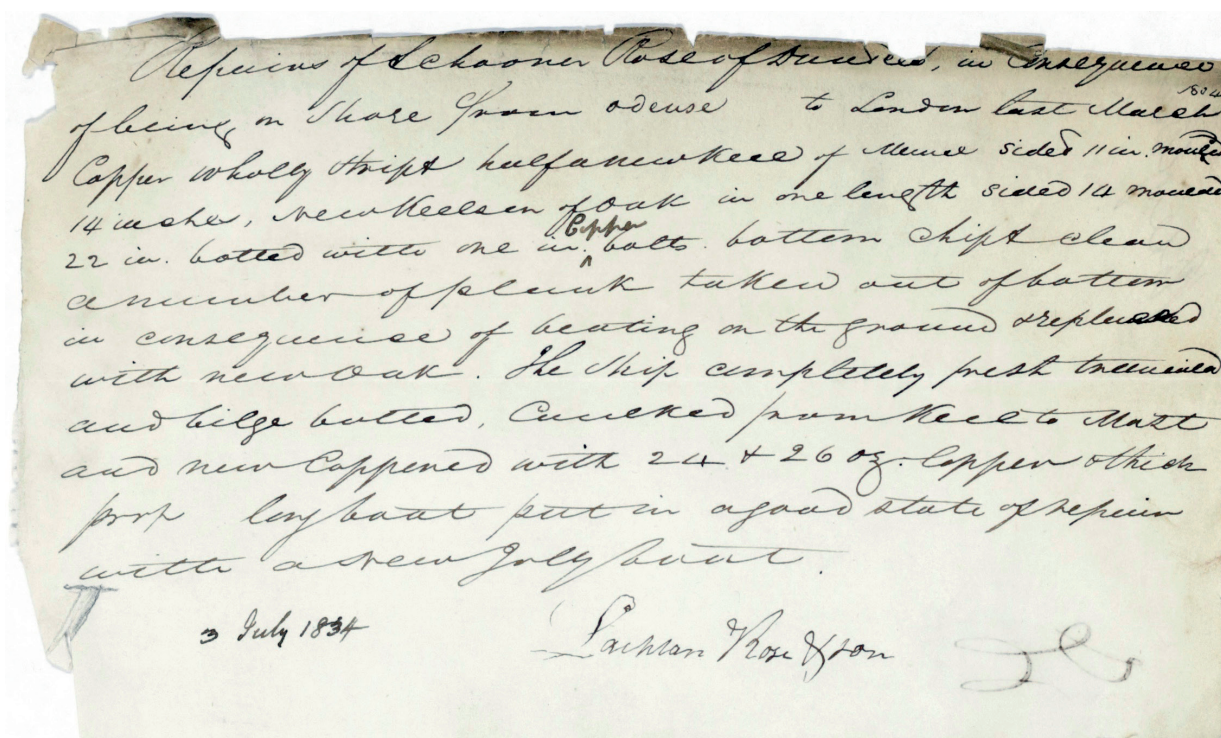 Repairs of Schooner Rose of Dundee, in Consequence
of being on Shore from odense to London last March
Copper wholly stript half a new Keel of Memel sided 11 in. moulded
14 inches, New Keelson of Oak in one length sided 14 moulded
22 in. botted with one in. Copper bolts. bottom chipt clean
a number of plank taken out of bottom
in consequence of beating on the ground & replaced
with new Oak. The Ship completely fresh treenailed
and bilge botted, Caulked from Keel to Mast
and new Coppered with 24 & 26 oz. Copper thick
long boat put in a good state of repair
with a New Jolly boat.
3 July 1834
Lachlan Rose & Son